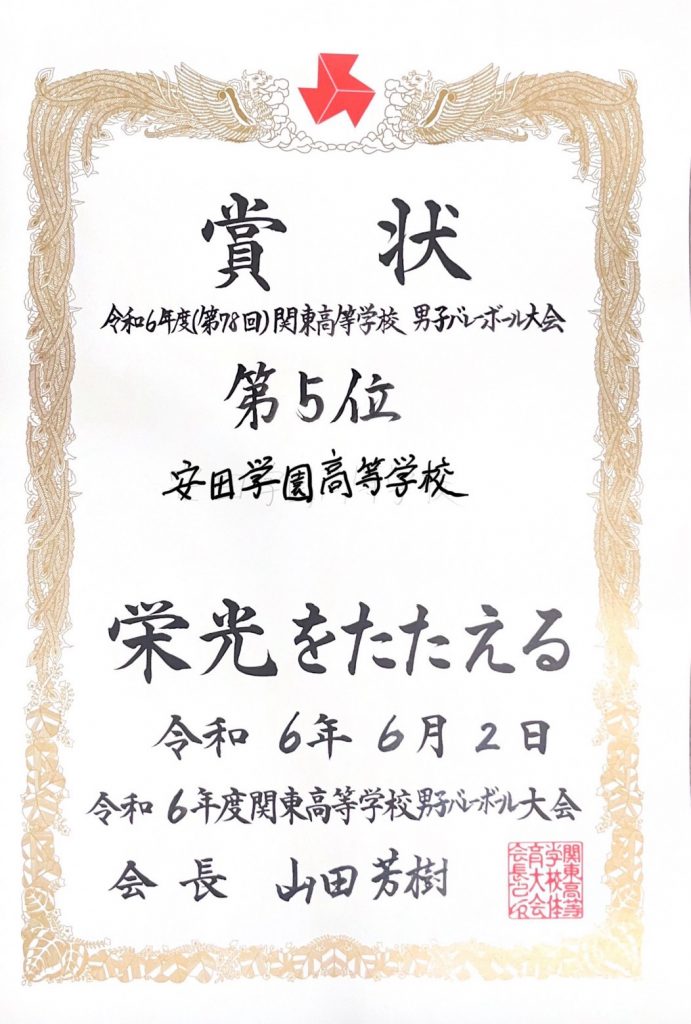 賞状
令和6年度(第78回)関東高等学校 男子バレーボール大会
第5位
安田学園高等学校
栄光をたたえる
令和 6年 6月 2日
令和 6年度関東高等学校男子バレーボール大会
会長 山田芳樹
関東高等
学校体
育大会
会長之印